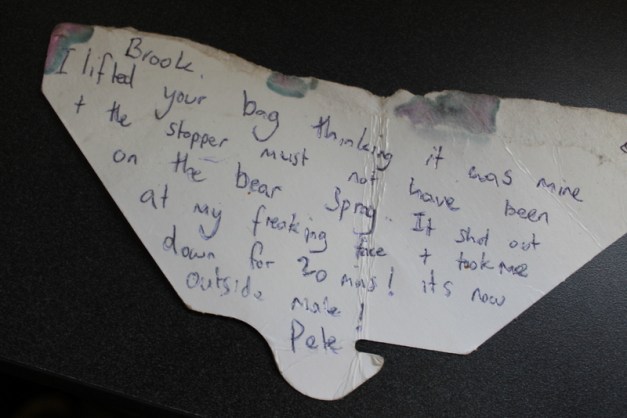 Brook.
I lifted your bag thinking it was mine
+ the stopper must not have been
on the bear spray. It shot out
at my freaking face + took me
down for 20 mins! its now
outside mate!
Pete